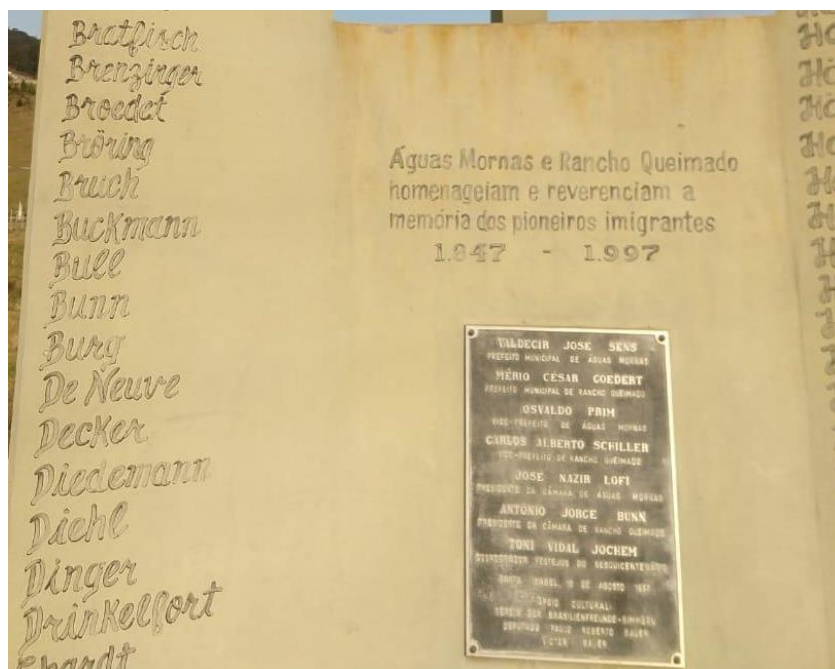 Bratfisch
Brenzinger
Broedet
Bröring
Bruch
Buckmann
Bull
Bunn
Burg
De Neuve
Decker
Diedemann
Diehl
Dinger
Drinkelfort
Águas Mornas e Rancho Queimado
homenageiam e reverenciam a
memória dos pioneiros imigrantes
1.847 - 1.997
VALDECIR JOSE SENS
PREFEITO MUNICIPAL DE ÁGUAS MORNAS
MÉRIO CÉSAR GOEDERT
PREFEITO MUNICIPAL DE RANCHO QUEIMADO
OSVALDO PRIM
VICE-PREFEITO DE ÁGUAS MORNAS
CARLOS ALBERTO SCHILLER
VICE-PREFEITO DE RANCHO QUEIMADO
JOSE NAZIR LOFI
PRESIDENTE DA CÂMARA DE ÁGUAS MORNAS
ANTÔNIO JORGE BUNN
PRESIDENTE DA CÂMARA DE RANCHO QUEIMADO
TONI VIDAL JOCHEM
COORDENADOR FESTEJOS DO SESQUICENTENÁRIO
SANTA ISABEL, DE AGOSTO 1997
APOIO CULTURAL:
VEREIN DER BRASILIENFREUNDE-SIMMERN
DEPUTADO PAULO ROBERTO BAUER
VICTOR BAUER